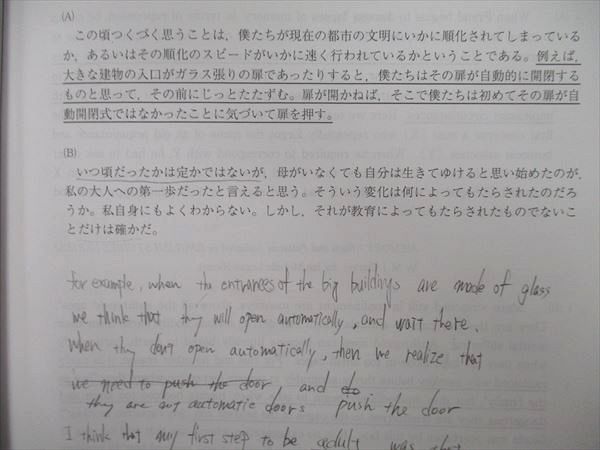 (A)
この頃つくづく思うことは、僕たちが現在の都市の文明にいかに順化されてしまっている
か、あるいはその順化のスピードがいかに速く行われているかということである。例えば、
大きな建物の入口がガラス張りの扉であったりすると、僕たちはその扉が自動的に開閉する
ものと思って、その前にじっとたたずむ。扉が開かねば、そこで僕たちは初めてその扉が自
動開閉式ではなかったことに気づいて扉を押す。
(B)
いつ頃だったかは定かではないが、母がいなくても自分は生きてゆけると思い始めたのが、
私の大人への第一歩だったと言えると思う。そういう変化は何によってもたらされたのだろ
うか。私自身にもよくわからない。しかし、それが教育によってもたらされたものでないこ
とだけは確かだ。
for example, when the entrances of the big buildings are made of glass
we think that they will open automatically, and wait there.
when they don't open automatically, then we realize that
we need to push the door, and do
they are not automatic doors push the door
I think that my first step to be adult was that